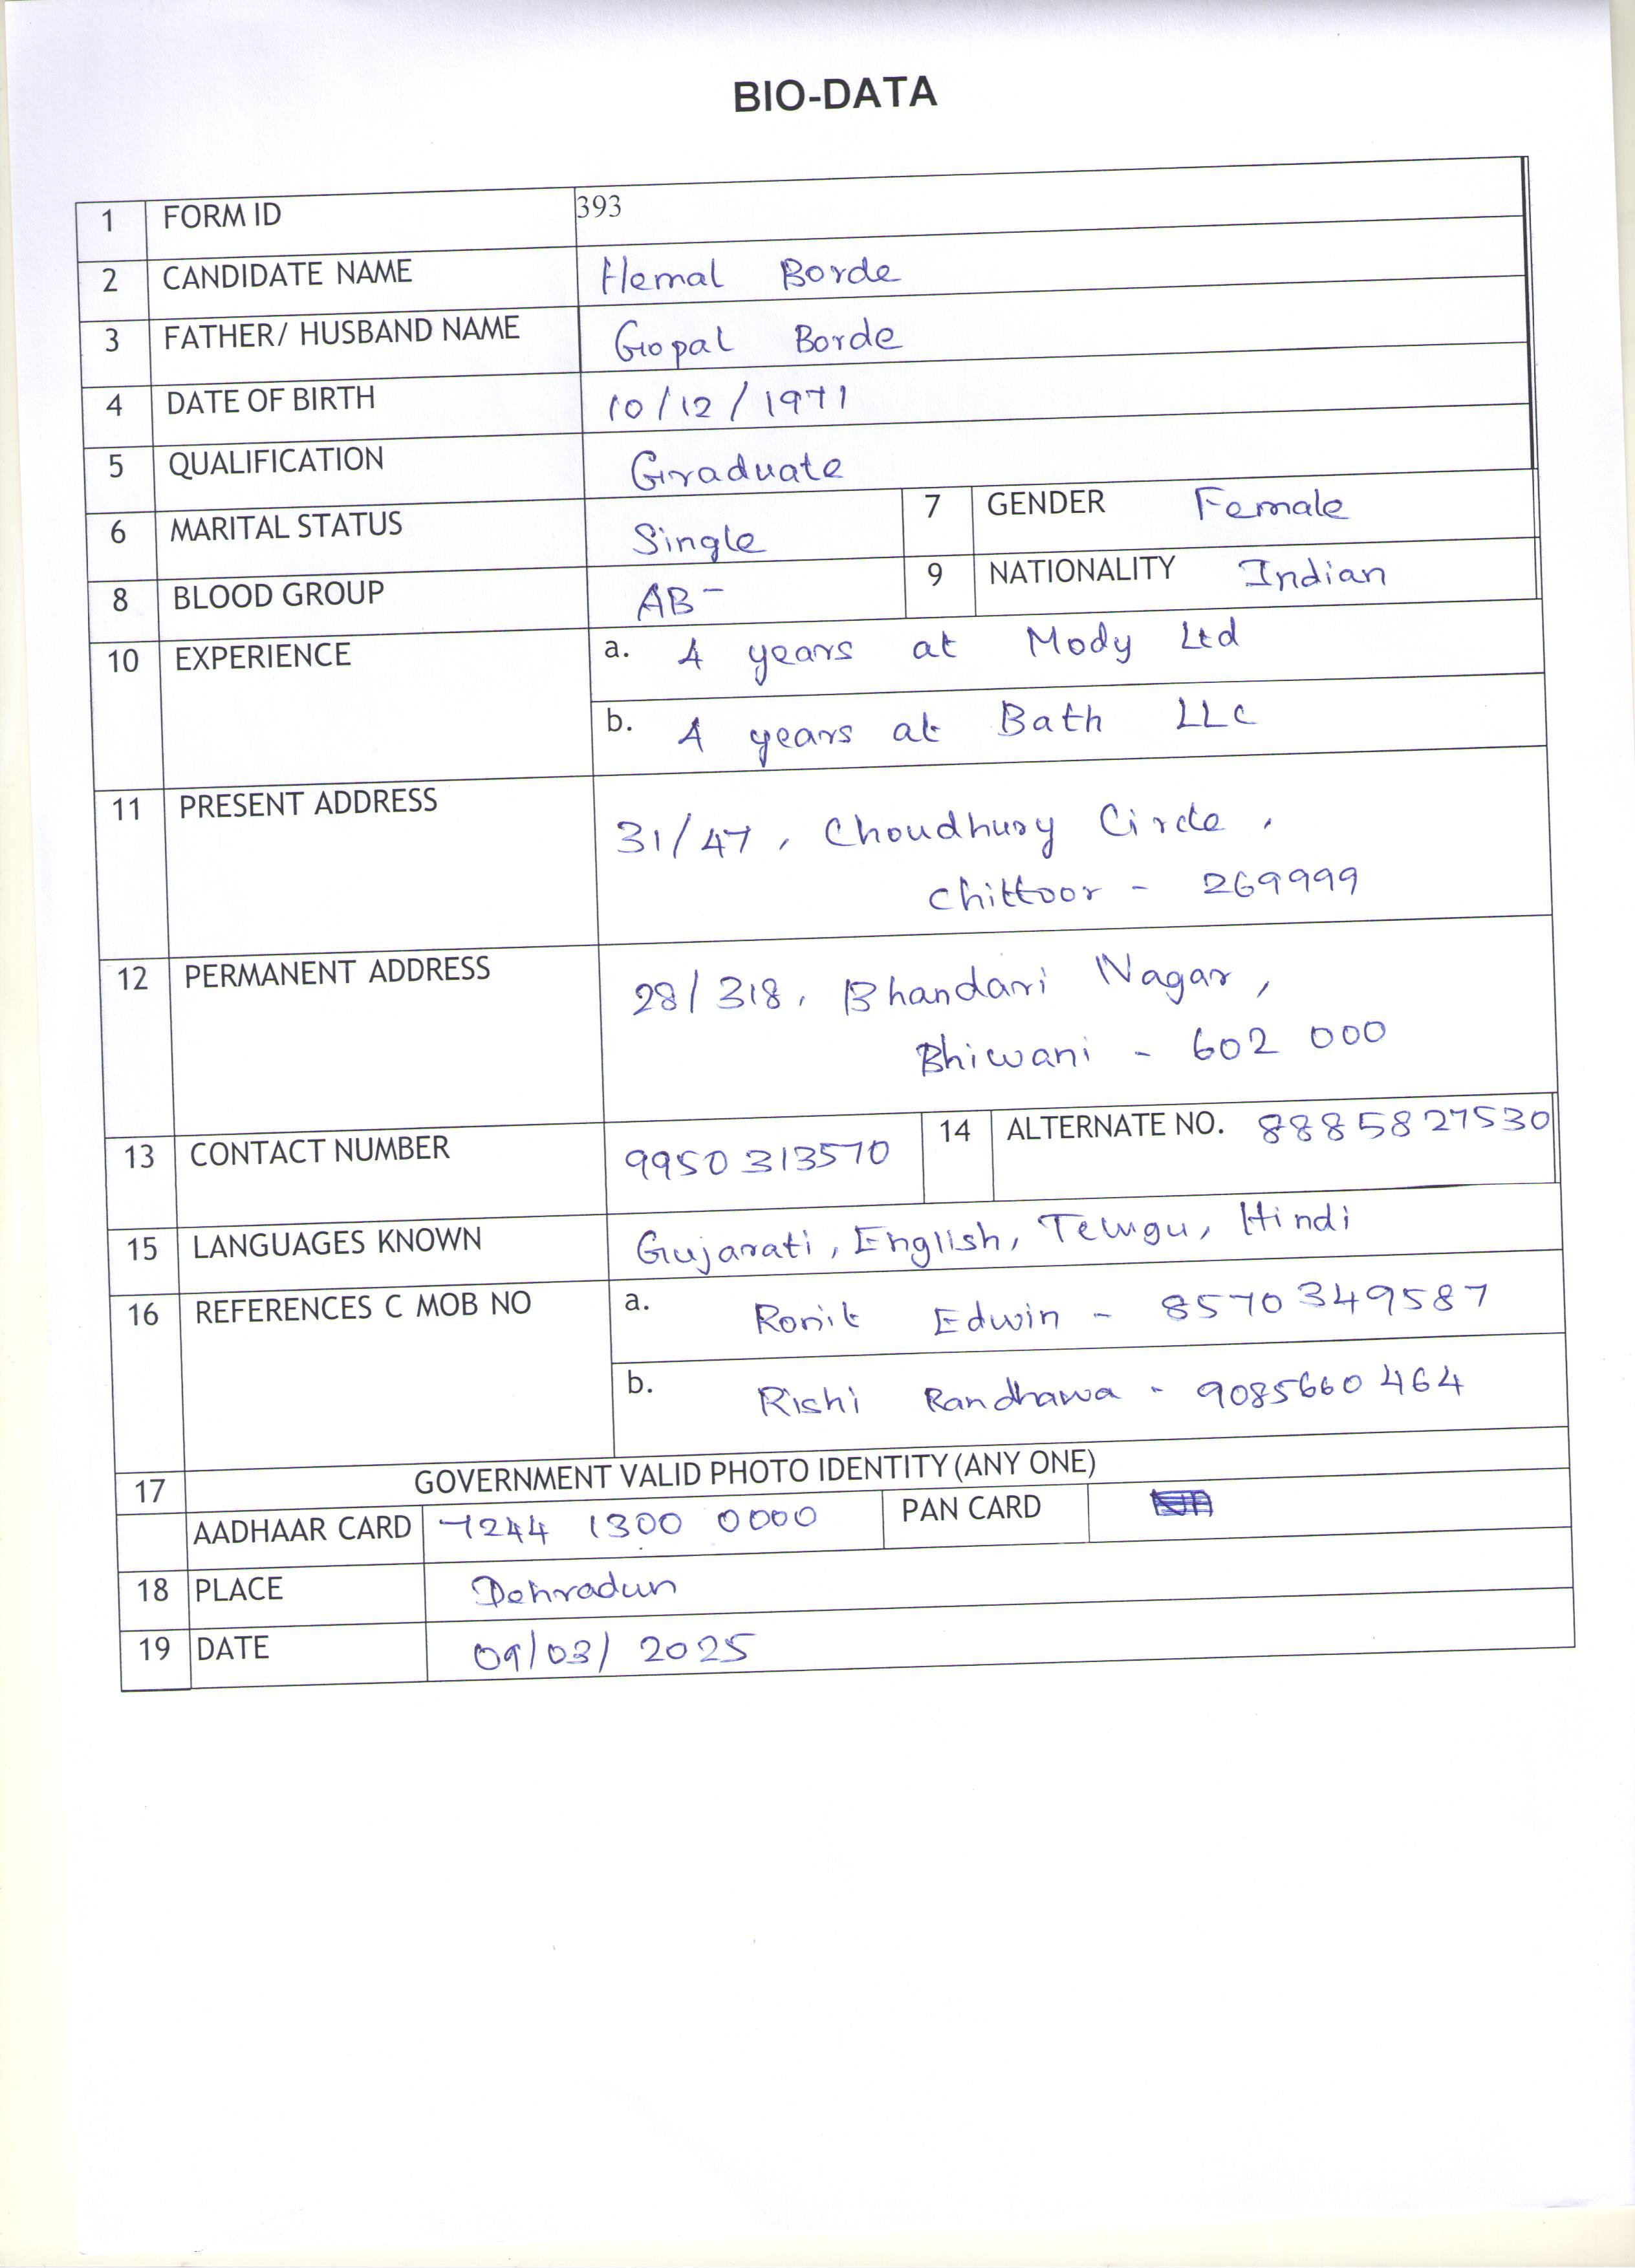 BIO-DATA
1 FORM ID 393
2 CANDIDATE NAME Hemal Borde
3 FATHER/ HUSBAND NAME Gopal Borde
4 DATE OF BIRTH 10/12/1971
5 QUALIFICATION Graduate
6 MARITAL STATUS Single 7 GENDER Female
8 BLOOD GROUP AB- 9 NATIONALITY Indian
10 EXPERIENCE a. 4 years at Mody Ltd
b. 4 years at Bath LLC
11 PRESENT ADDRESS 31/47, Choudhury Circle,
Chittoor - 269999
12 PERMANENT ADDRESS 28/318, Bhandari Nagar,
Bhiwani - 602 000
13 CONTACT NUMBER 9950313570 14 ALTERNATE NO. 8885827530
15 LANGUAGES KNOWN Gujarati, English, Telugu, Hindi
16 REFERENCES C MOB NO a. Ronit Edwin - 8570349587
b. Rishi Randhawa - 9085660464
17 GOVERNMENT VALID PHOTO IDENTITY (ANY ONE)
AADHAAR CARD 7244 1300 0000 PAN CARD
18 PLACE Dehradun
19 DATE 09/03/2025